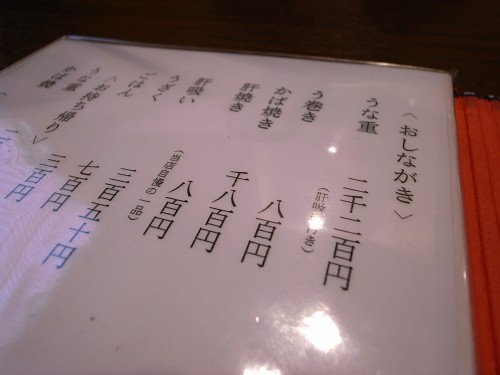 〈 おしながき 〉
うな重 二千二百円
(肝吸い付き)
う巻き 八百円
かば焼き 千八百円
肝焼き 八百円
(当店自慢の一品)
肝吸い 三百五十円
うざく 七百円
ごはん 三百円
〈お持ち帰り〉
うな重 二
かば焼